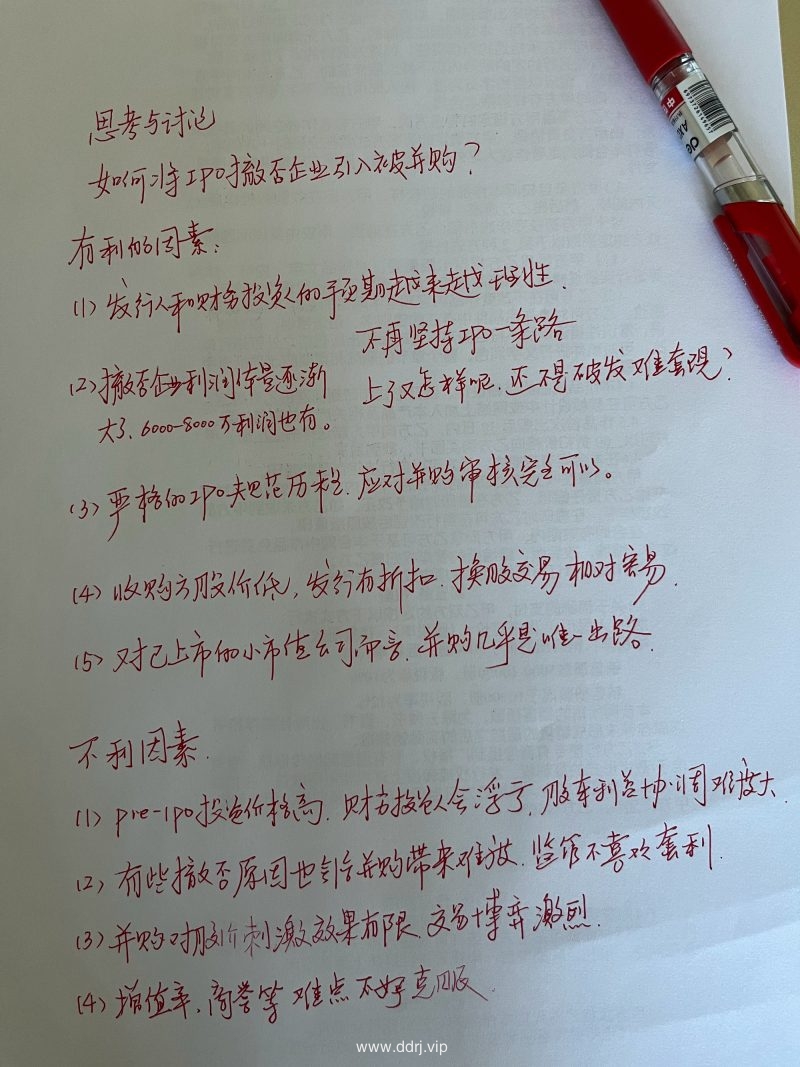 思考与讨论
如何将IPO撤否企业引入被并购？
有利的因素：
(1) 发行人和财务投资人的预期越来越理性.
不再坚持IPO一条路
上了又怎样呢，还不是破发难套现？
(2) 撤否企业利润体量逐渐
大了、6000-8000万利润也有。
(3) 严格的IPO规范历程，应对并购审核完全可以。
(4) 收购方股价低，发行有折扣，换股交易相对容易.
(5) 对已上市的小市值公司而言，并购几乎是唯一出路.
不利因素.
(1) pre-ipo投资价格高，财务投资人会浮亏，股东利益协调难度大.
(2) 有些撤否原因也会给并购带来难被，监管不喜欢套利.
(3) 并购对股价刺激效果有限，交易博弈激烈.
(4) 增值率、商誉等难点不好克服.
www.ddrj.vip